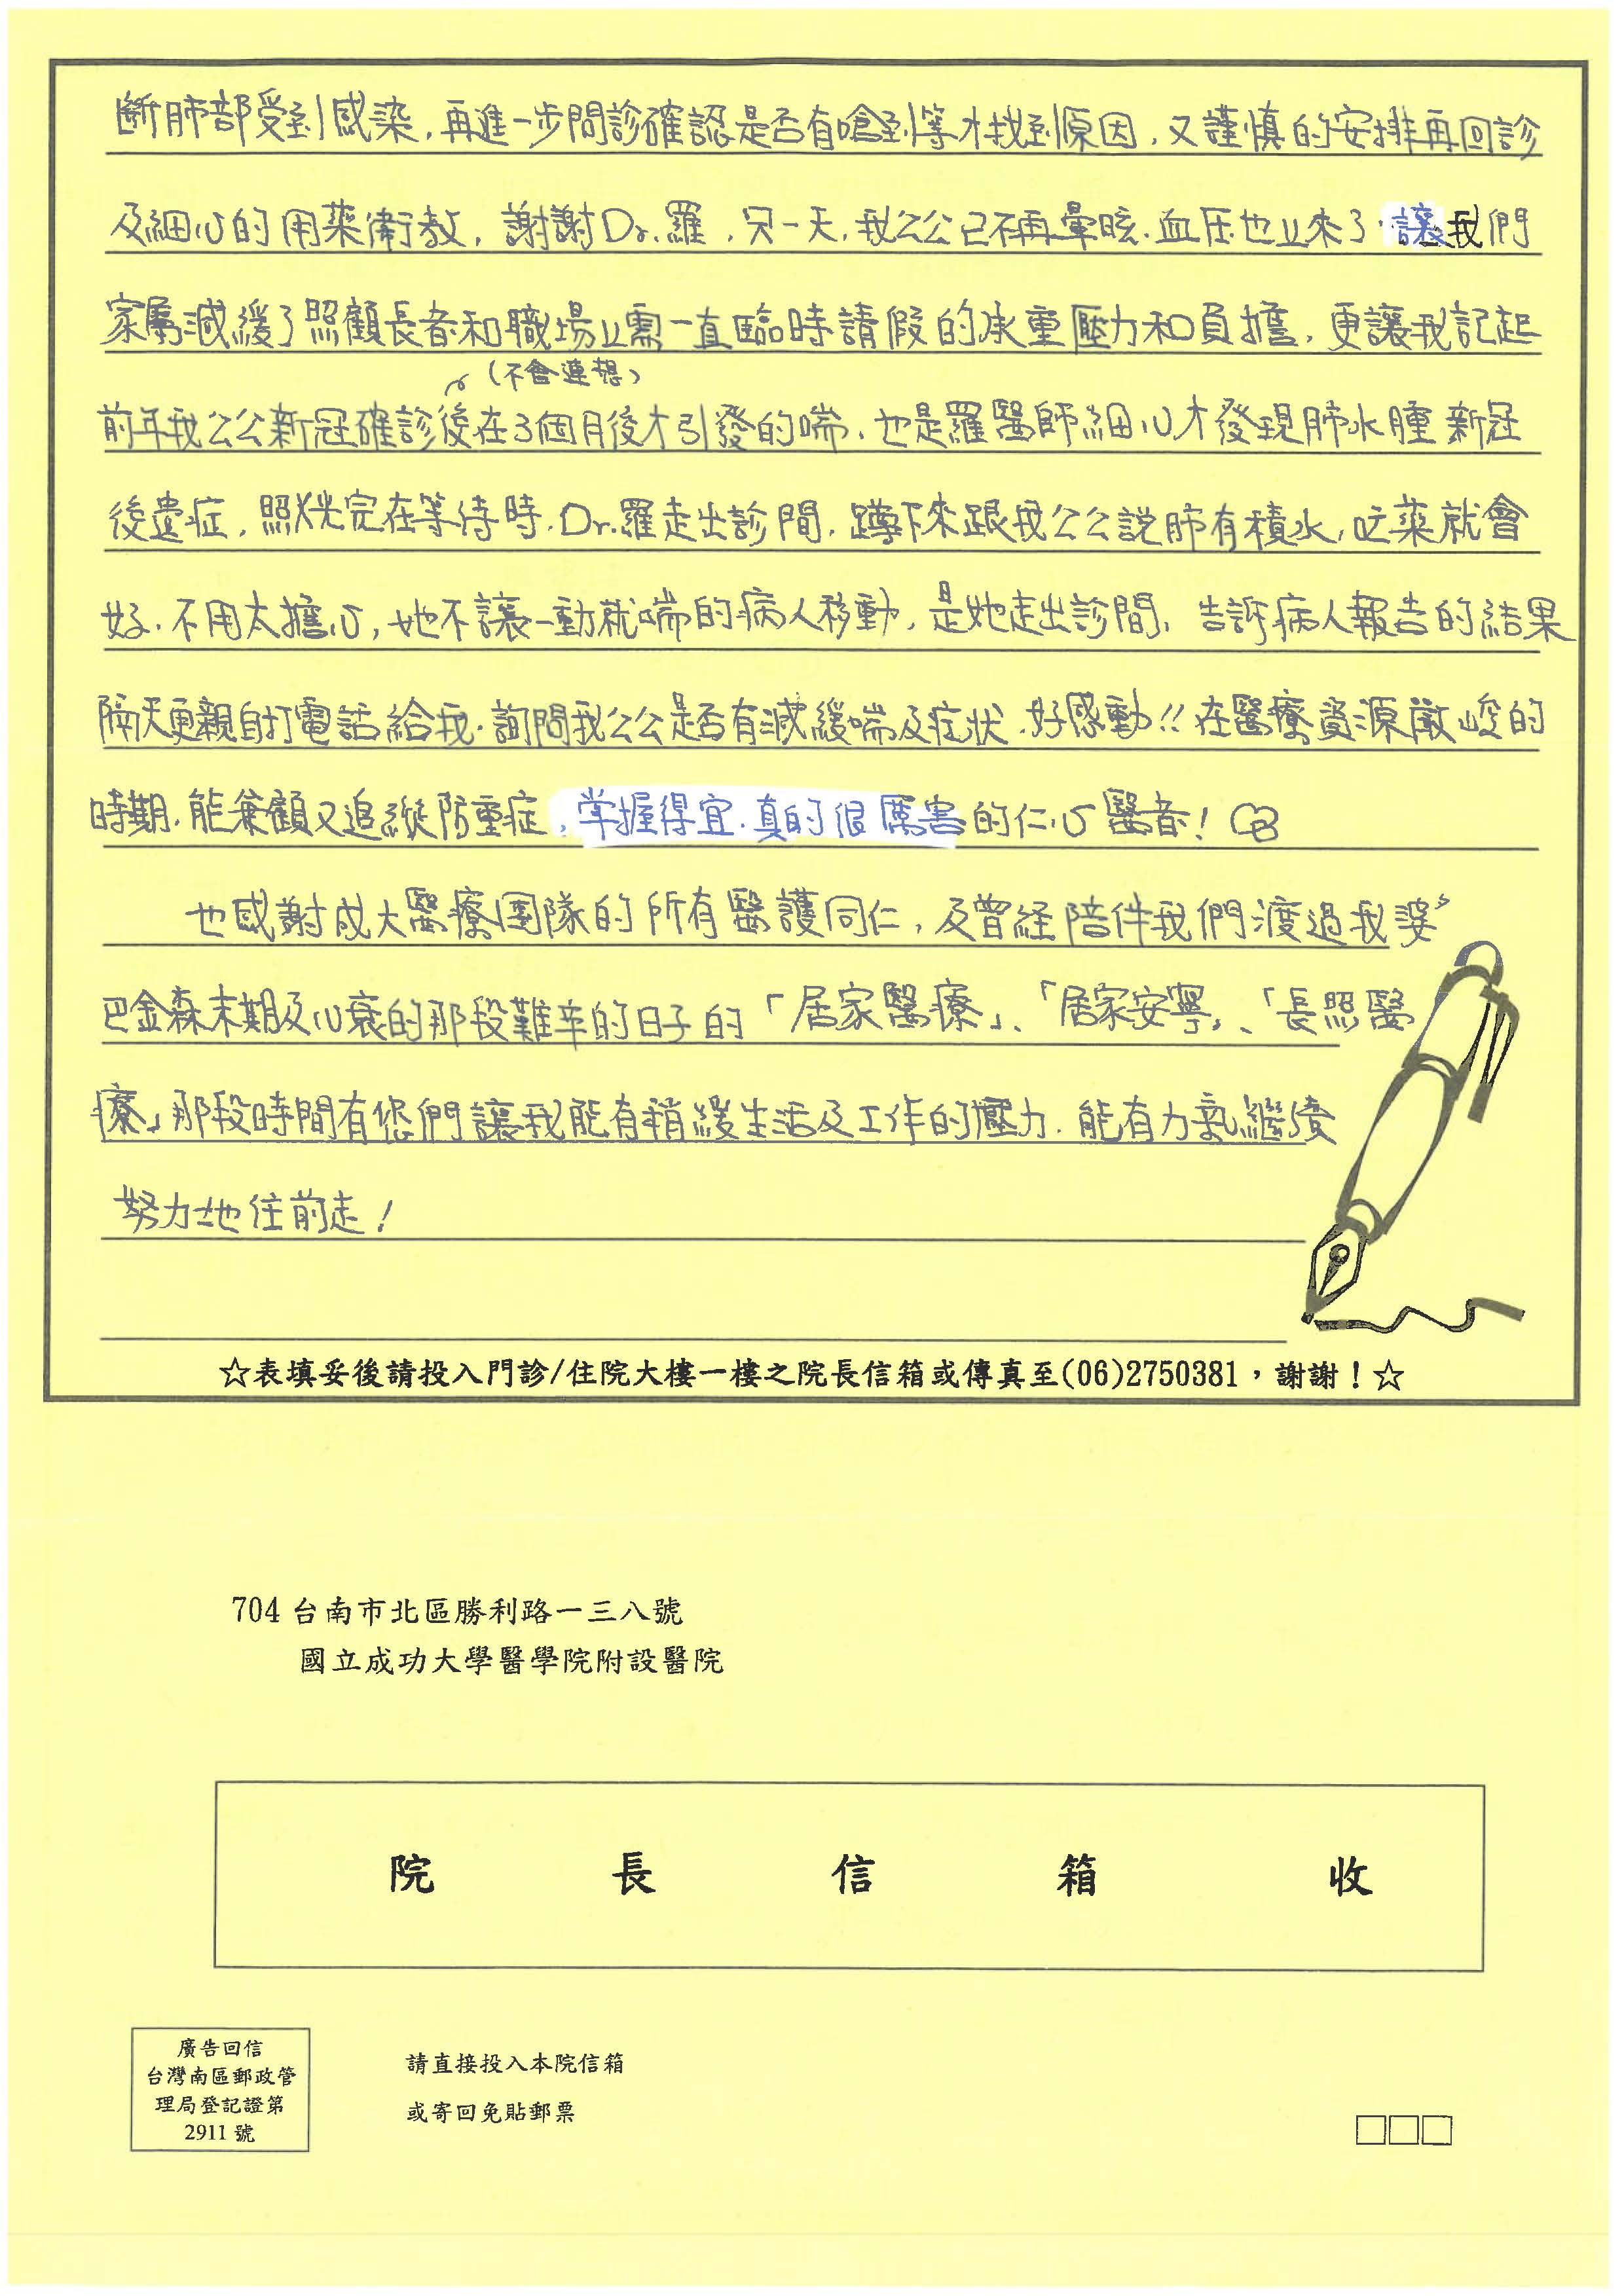 斷肺部受到感染，再進一步問診確認是否有嗆到等才找到原因，又謹慎的安排再回診
及細心的用藥衛教，謝謝Dr.羅，只一天，我公公已不再暈眩，血压也上來了，讓我們
家屬減緩了照顧長者和職場上需一直臨時請假的承重壓力和負擔，更讓我記起
(不會連想)
前年我公公新冠確診後在3個月後才引發的喘，也是羅醫師細心才發現肺水腫新冠
後遺症，照X光完在等待時，Dr.羅走出診間，蹲下來跟我公公說肺有積水，吃藥就會
好，不用太擔心，她不讓一動就喘的病人移動，是她走出診間，告訴病人報告的結果
隔天更親自打電話給我，詢問我公公是否有減緩喘及症狀，好感動!!在醫療資源嚴峻的
時期，能兼顧又追縱防重症，掌握得宜，真的很厲害的仁心醫者！
也感謝成大醫療團隊的所有醫護同仁，及曾經陪伴我們渡過我婆〻
巴金森末期及心衰的那段難辛的日子的「居家醫療」、「居家安寧」、「長照醫
療」那段時間有您們讓我能有稍緩生活及工作的壓力，能有力氣繼續
努力地往前走！
☆表填妥後請投入門診/住院大樓一樓之院長信箱或傳真至(06)2750381，謝謝！☆
704 台南市北區勝利路一三八號
國立成功大學醫學院附設醫院
院長信箱收
廣告回信
台灣南區郵政管
理局登記證第
2911 號
請直接投入本院信箱
或寄回免貼郵票